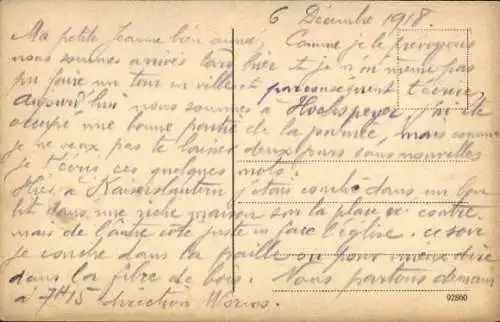 6 Décembre 1918.
Ma petite Jeanne bien aimée, Comme je le prévoyais
nous sommes arrivés tard hier et je n'ai même pas
pu faire un tour en ville et par conséquent t'écrire
aujourd'hui nous sommes à Hochspeyer j'ai été
occupé une bonne partie de la journée, mais comme
je ne veux pas te laisser deux jours sans nouvelles
je t'écris ces quelques mots.
Hier à Kaiserslautern j'étais couché dans un bon
lit dans une riche maison sur la place et contre
mais de l'autre côté juste en face l'église. ce soir
je couche dans la paille ou pour mieux dire
dans la fibre de bois. Nous partons demain
à 7H15 direction Worms.
92800